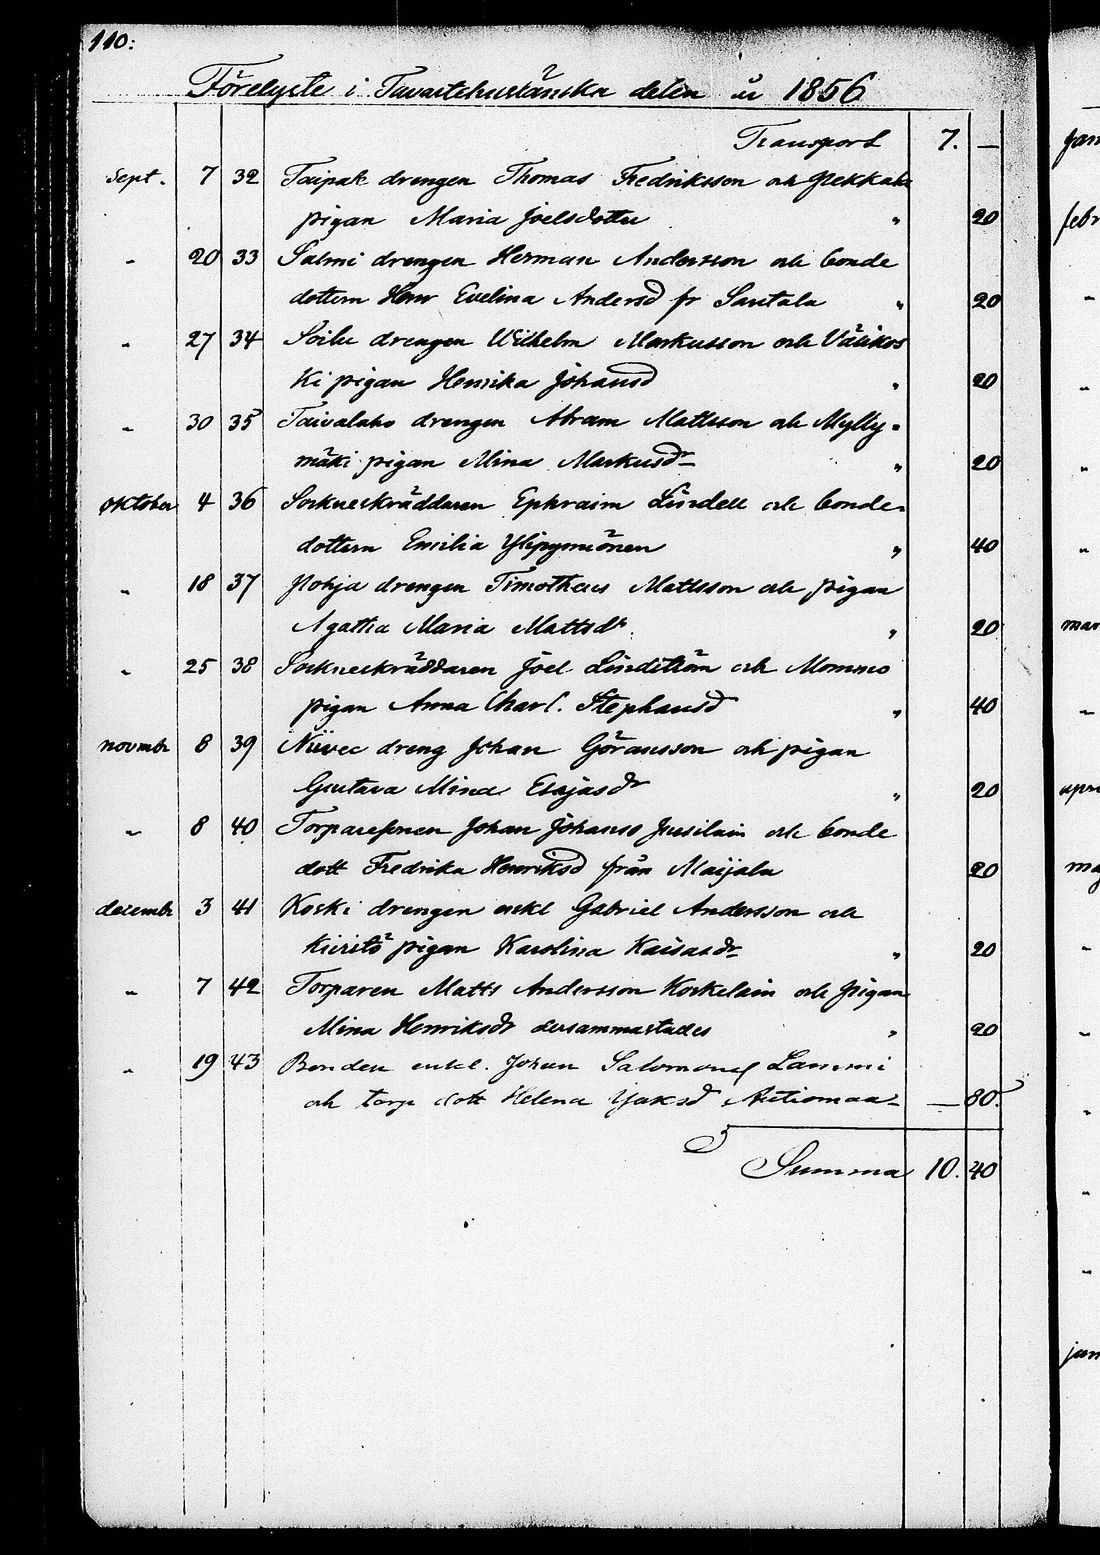 110:
Förelyste i Tavastehuslänska delen år 1856
Transport 7. —
Sept. 7 32 Taipale drengen Thomas Fredriksson och Pekkala
pigan Maria Joelsdotter " 20
" 20 33 Salmi drengen Herman Andersson och bonde
dottern Henr Evelina Andersd fr Sautala " 20
" 27 34 Soilu drengen Wilhelm Markusson och Välikos
ki pigan Henrika Johansd " 20
" 30 35 Taivalaho drengen Abram Mattsson och Mylly=
mäki pigan Mina Markusdr " 20
Oktober 4 36 Sockneskräddaren Ephraim Lindell och bonde=
dottern Emilia Ylipynnönen " 40
" 18 37 Pohja drengen Timotheus Mattsson och pigan
Agatha Maria Mattsdr " 20
" 25 38 Sockneskräddaren Joel Lindström och Mommo
pigan Anna Charl. Stephansd " 40
novmbr 8 39 Niivec dreng Johan Göransson och pigan
Gustava Mina Esajasdr " 20
" 8 40 Torparesonen Johan Johanss Jussilain och bonde
dott Fredrika Henriksd från Maijala 20
decembr 3 41 Koski drengen enkl Gabriel Andersson och
Kieritö pigan Karolina Kaisasdr " 20
" 7 42 Torparen Matts Andersson Koskelain och pigan
Mina Henriksdr dersammastades " 20
" 19 43 Bonden enkl. Johan Salomons Lammi
och torp dott Helena Isaksd Autiomaa — 80.
Summa 10. 40